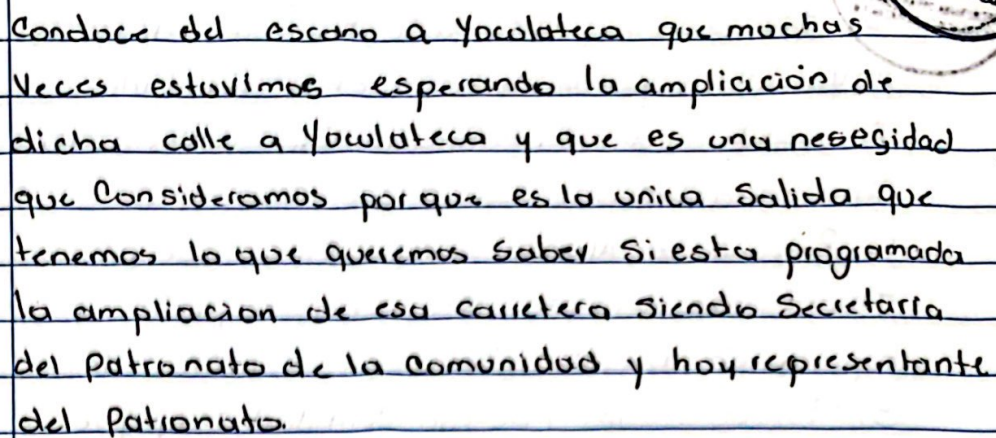 Conduce del escano a Yocolateca que muchas
Veces estuvimos esperando la ampliación de
dicha calle a Yocolateca y que es una nesesidad
que Consideramos por que es la unica Salida que
tenemos lo que queremos saber si esta programada
la ampliacion de esa carretera siendo Secretaria
del Patronato de la Comunidad y hoy representante
del Patronato.